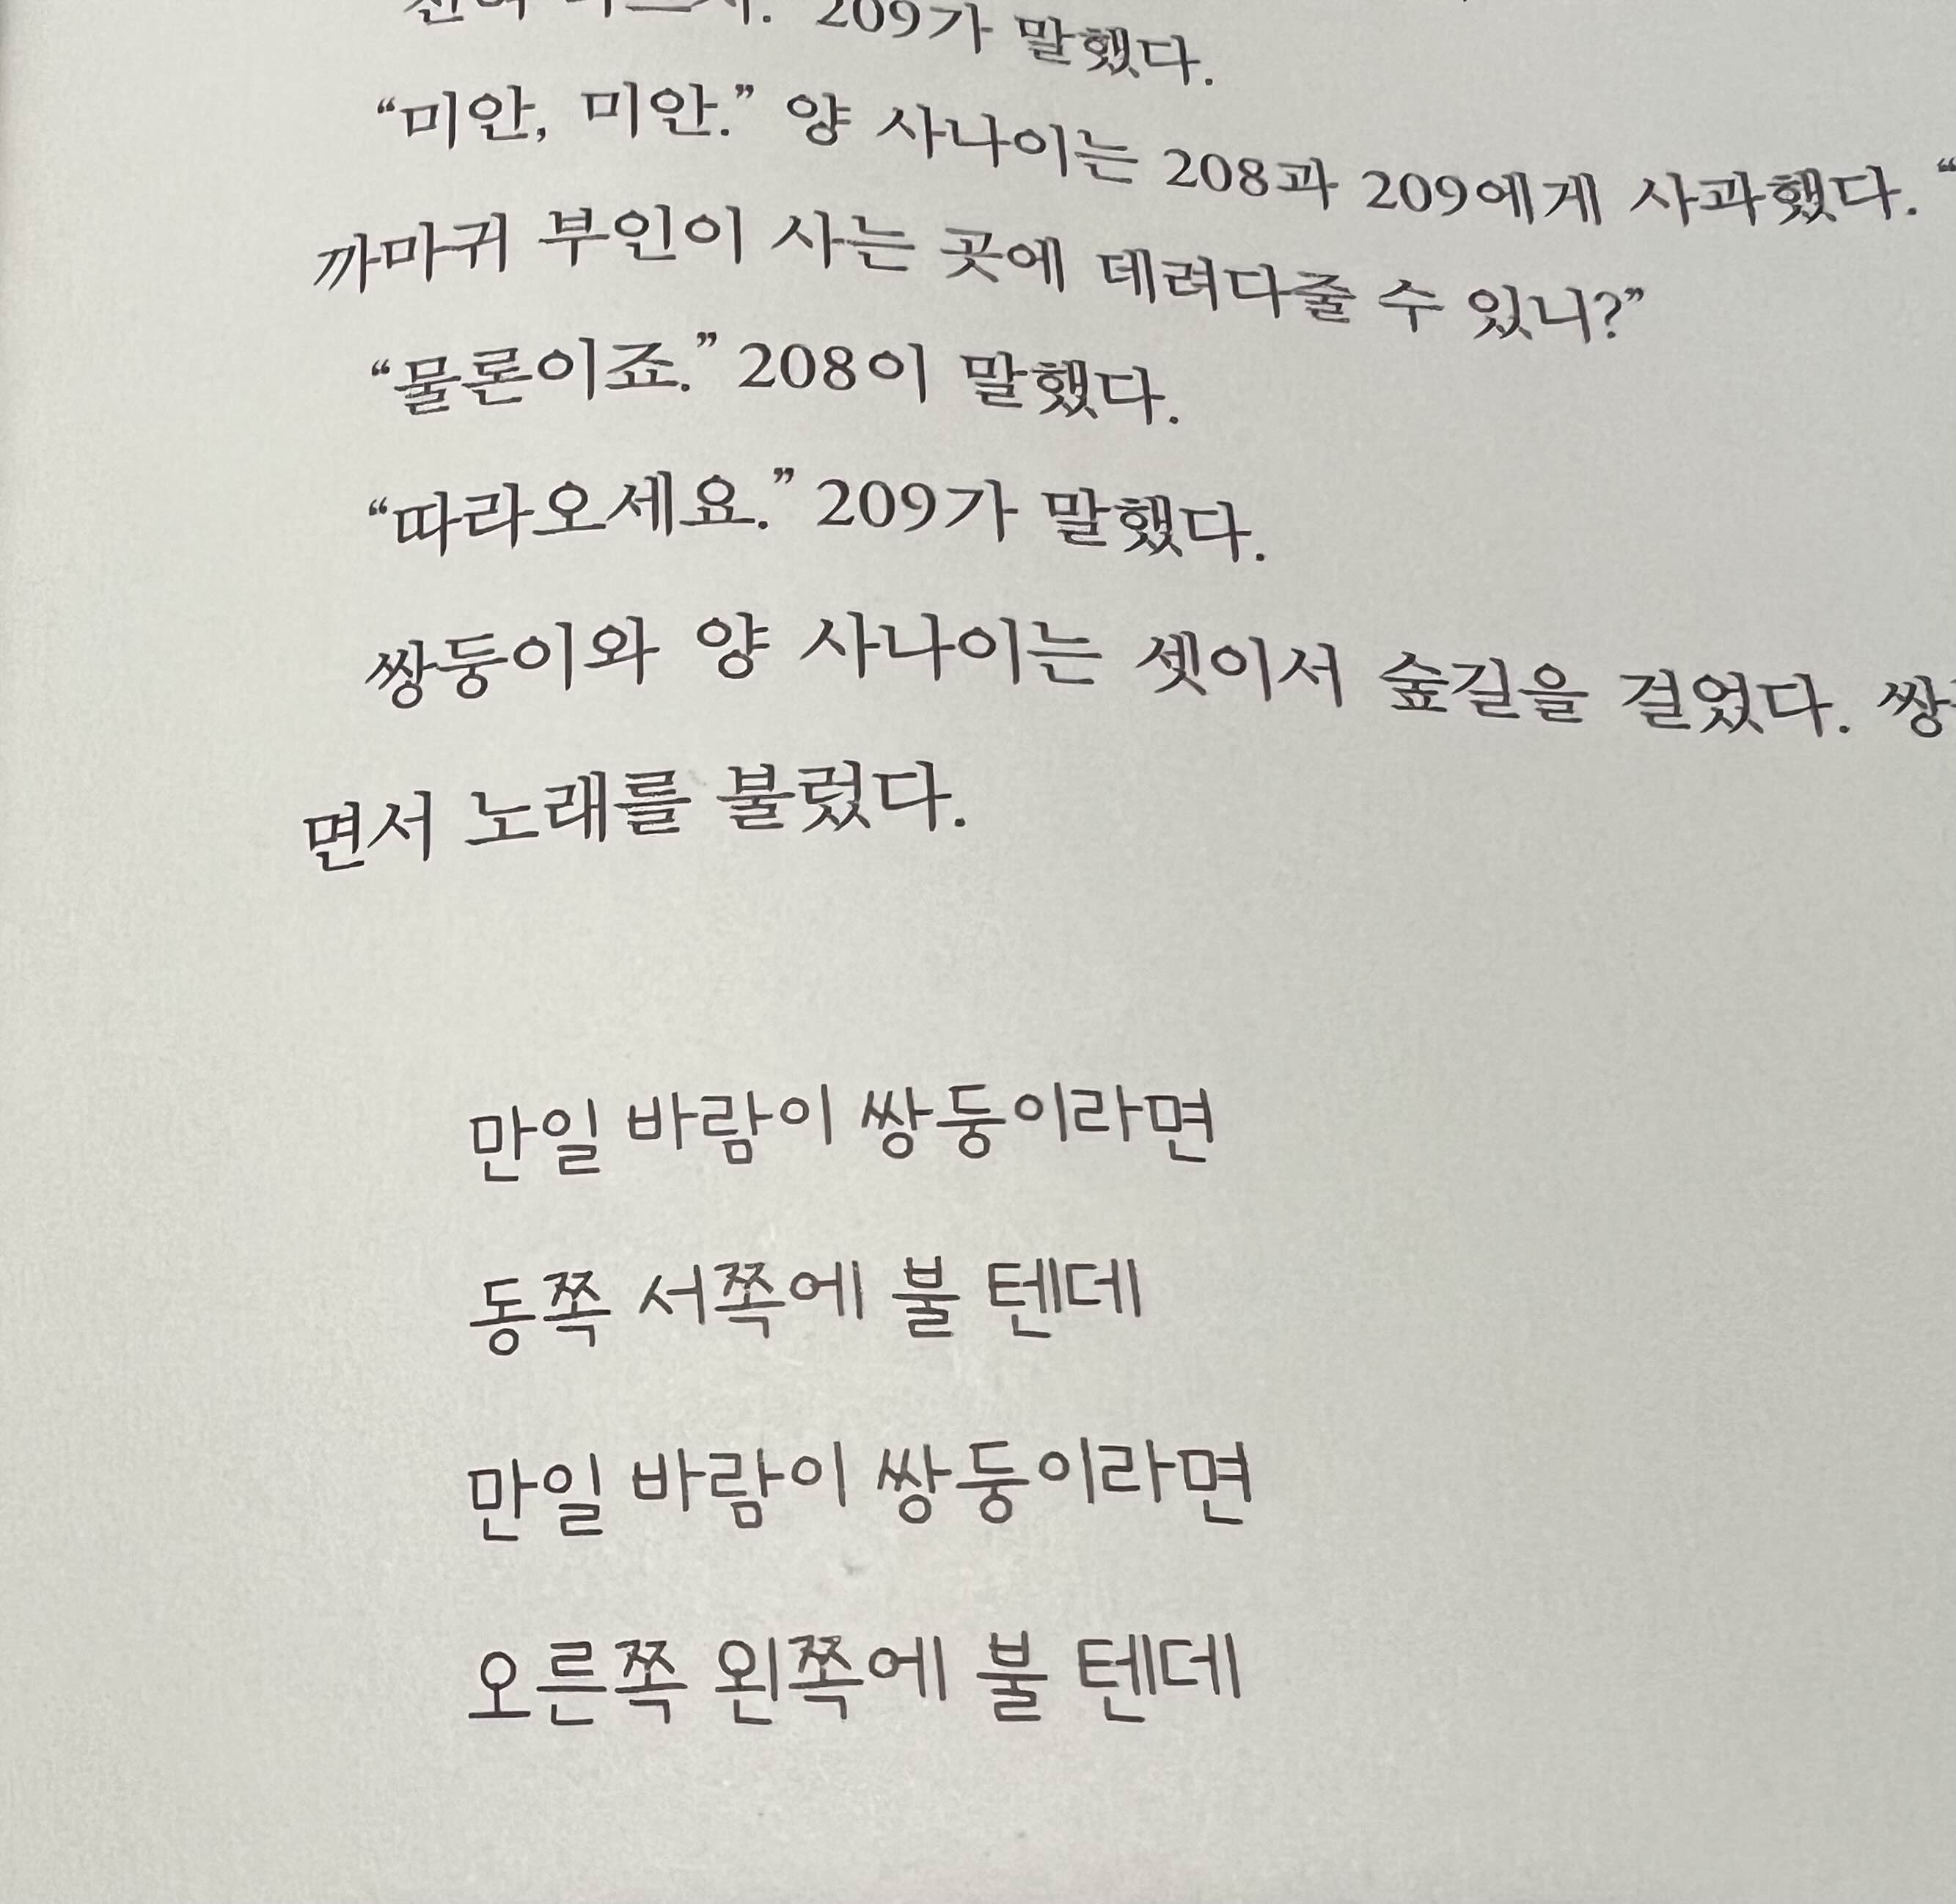 209가 말했다.
“미안, 미안.” 양 사나이는 208과 209에게 사과했다. “
까마귀 부인이 사는 곳에 데려다줄 수 있니?”
“물론이죠.” 208이 말했다.
“따라오세요.” 209가 말했다.
쌍둥이와 양 사나이는 셋이서 숲길을 걸었다. 쌍
면서 노래를 불렀다.
만일 바람이 쌍둥이라면
동쪽 서쪽에 불 텐데
만일 바람이 쌍둥이라면
오른쪽 왼쪽에 불 텐데